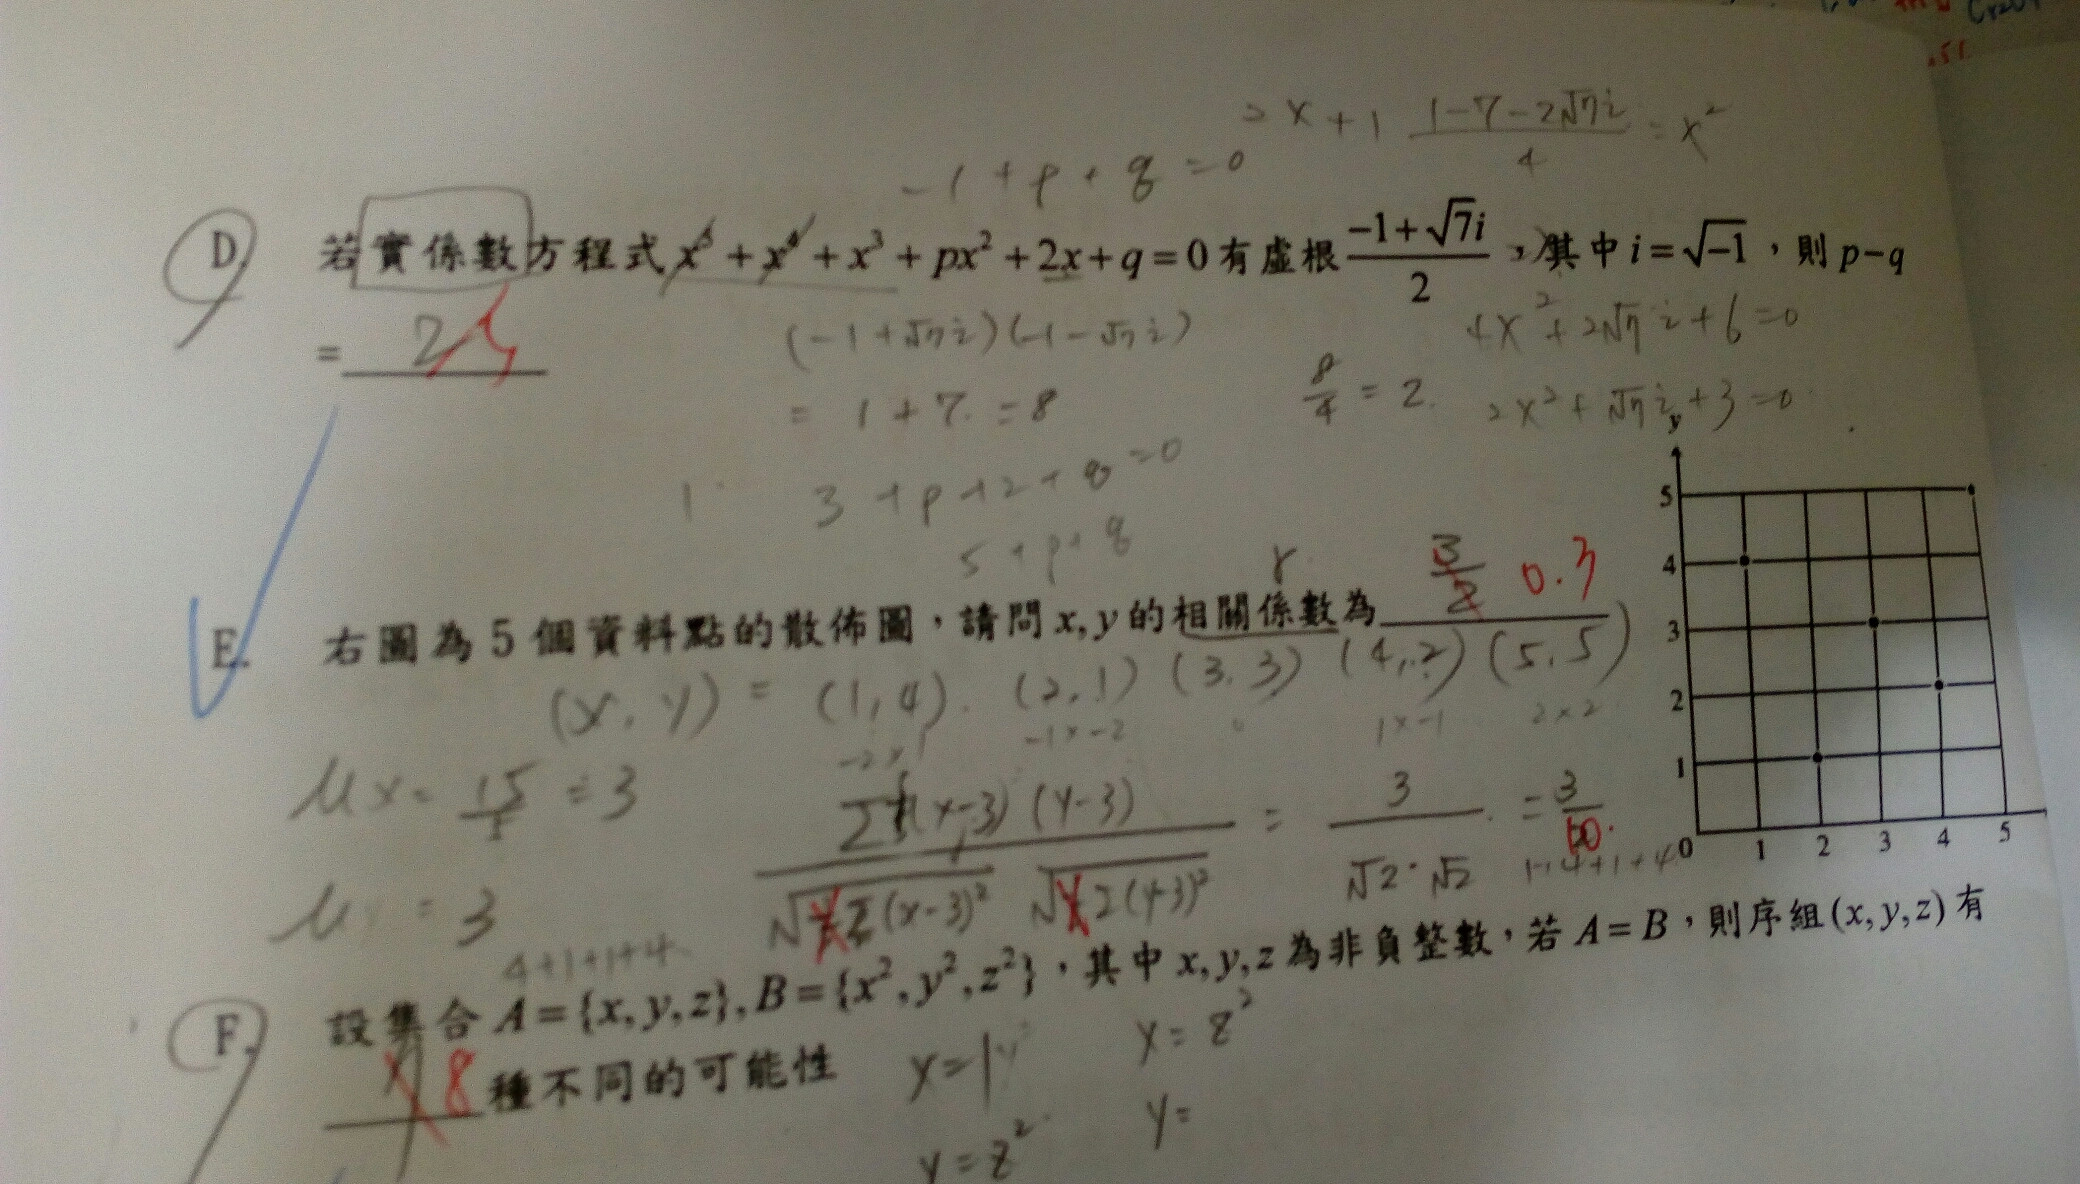 2x+1 (1-7-2√7i)/4 = x²
-1+p+q=0
D. 若實係數方程式 x⁵+x⁴+x³+px²+2x+q=0 有虛根 (-1+√7i)/2，其中 i=√-1，則 p-q
= 2
(-1+√7i)(-1-√7i)
4x²+2√7i+6=0
= 1+7=8
8/4=2.
2x²+√7i+3=0
3+p+2+q=0
5+p+q
r
E. 右圖為 5 個資料點的散佈圖，請問 x, y 的相關係數為 3/2 0.3
(x, y) = (1,4). (2,1) (3,3) (4,2) (5,5)
-2×1 -1×-2 0 1×-1 2×2
μx=15/5=3
Σ(x-3)(y-3) = 3/(√2·√2) = 3/10
μy=3
√Σ(x-3)² √Σ(y-3)²
1+4+1+4
4+1+1+4
y
5
4
3
2
1
0 1 2 3 4 5
F. 設集合 A={x, y, z}, B={x², y², z²}，其中 x, y, z 為非負整數，若 A=B，則序組 (x, y, z) 有
8 種不同的可能性
x=z²
y=
y=z²